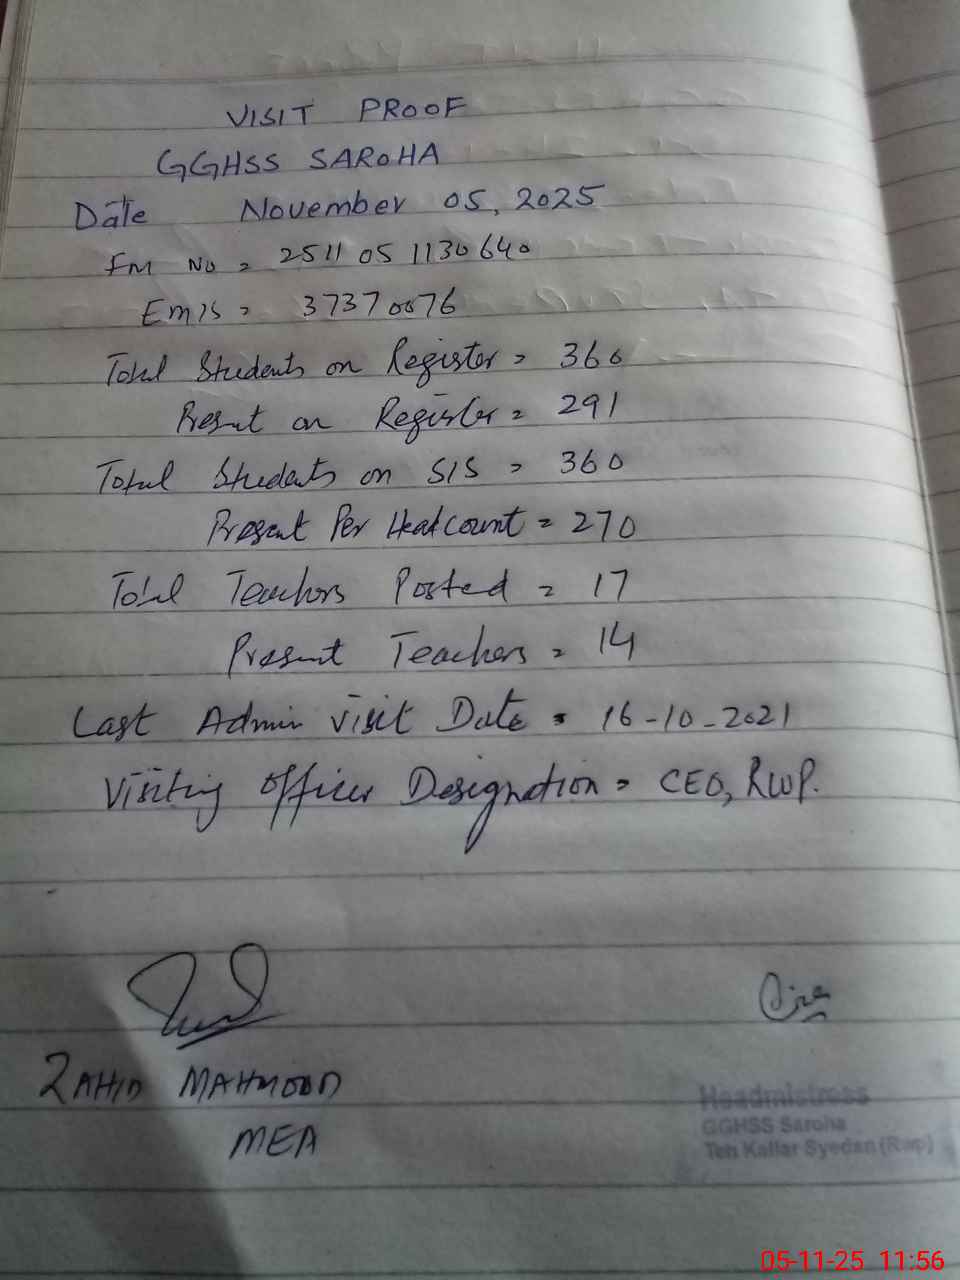 VISIT PROOF
GGHSS SAROHA
Date November 05, 2025
FM No = 2511 05 1130640
Emis = 37370076
Total Students on Register = 360
Present on Register = 291
Total Students on SIS = 360
Present Per Headcount = 270
Total Teachers Posted = 17
Present Teachers = 14
Last Admin visit Date = 16-10-2021
Visiting Officer Designation = CEO, RWP.
ZAHID MAHMOOD
MEA
Headmistress
GGHSS Saroha
Teh Kallar Syedan (Rwp)
05-11-25 11:56